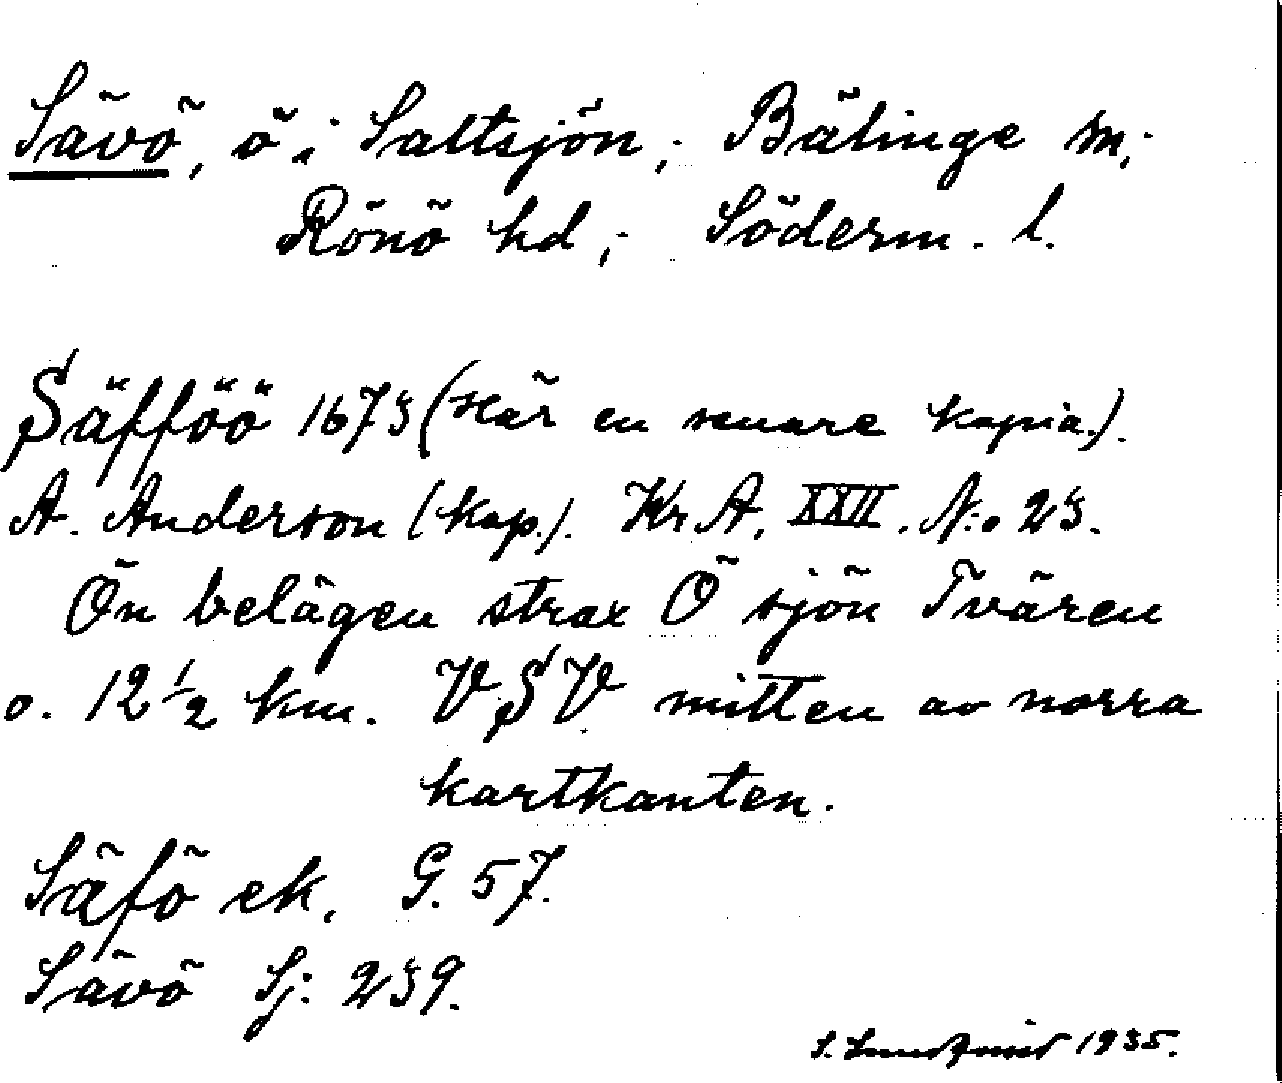 Sävö, ö i Saltsjön, Bälinge sn,
Rönö hd, Söderm. l.
Säfföö 1673 (Här en senare kopia.).
A. Anderson (kop.). Kr A. XXII. N:o 23.
Ön belägen strax Ö sjön Tvären
o. 12 ½ km. VSV mitten av norra
kartkanten.
Säfö ek. G. 57.
Sävö Sj. 239.
1935.